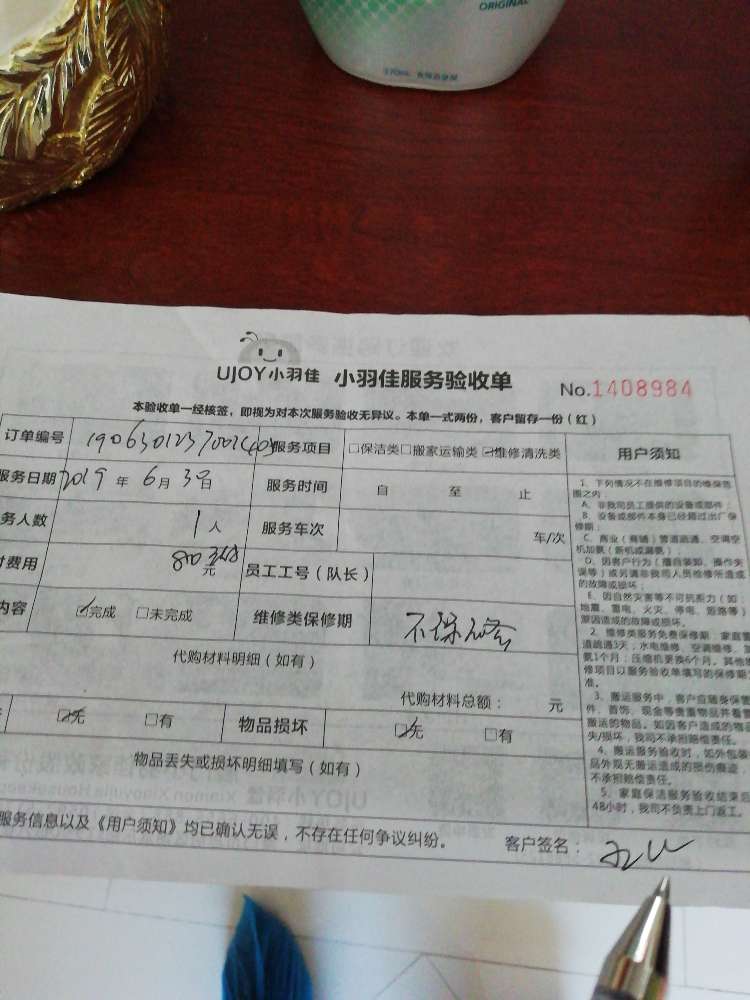 ORIGINAL
UJOY小羽佳 小羽佳服务验收单 No.1408984
本验收单一经核签，即视为对本次服务验收无异议。本单一式两份，客户留存一份（红）
订单编号 服务项目 □保洁类□搬家运输类☑维修清洗类 用户须知
服务日期 2019年6月30日 服务时间 自 至 止
务人数 1人 服务车次 车/次
付费用 元 员工工号（队长）
内容 ☑完成 □未完成 维修类保修期 不保修
代购材料明细（如有）
代购材料总额： 元
☑无 □有 物品损坏 ☑无 □有
物品丢失或损坏明细填写（如有）
服务信息以及《用户须知》均已确认无误，不存在任何争议纠纷。 客户签名：
1、下列情况不在维修项目的维保范
围之内
A、非我司员工提供的设备或部件；
B、设备或部件本身已经超过出厂保
修期；
C、商业（商铺）管道疏通、空调空
机加氨（新机或漏氨）；
D、因客户行为（擅自装卸、操作失
误等）或另请非我司人员维修所造成
的故障或损坏；
E、因自然灾害等不可抗拒力（如：
地震、雷电、火灾、停电、短路等）
原因造成的故障或损坏。
2、维修类服务免费保修期：家庭管
道疏通3天；水电维修、空调维修、加
氨1个月；压缩机更换6个月。其他维
修项目以服务验收单填写的保修期为
准。
3、搬运服务中，客户应随身保管
件、首饰、现金等贵重物品并看管
搬运的物品。如因客户造成的物品
失/损坏，我司不承担赔偿责任。
4、搬运服务验收时，如外包装
品外观无搬运造成的损伤痕迹，
不承担赔偿责任。
5、家庭保洁服务验收结束后
48小时，我司不负责上门返工。